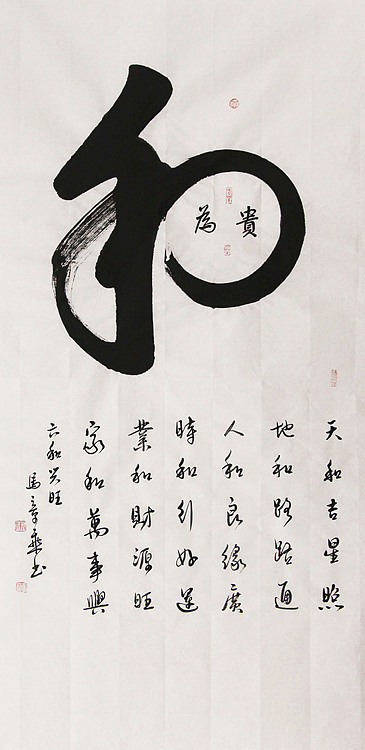 和
為貴
天和吉星照
地和路路通
人和良緣廣
時和引好運
業和財源旺
家和萬事興
六和兴旺
馬章乘书